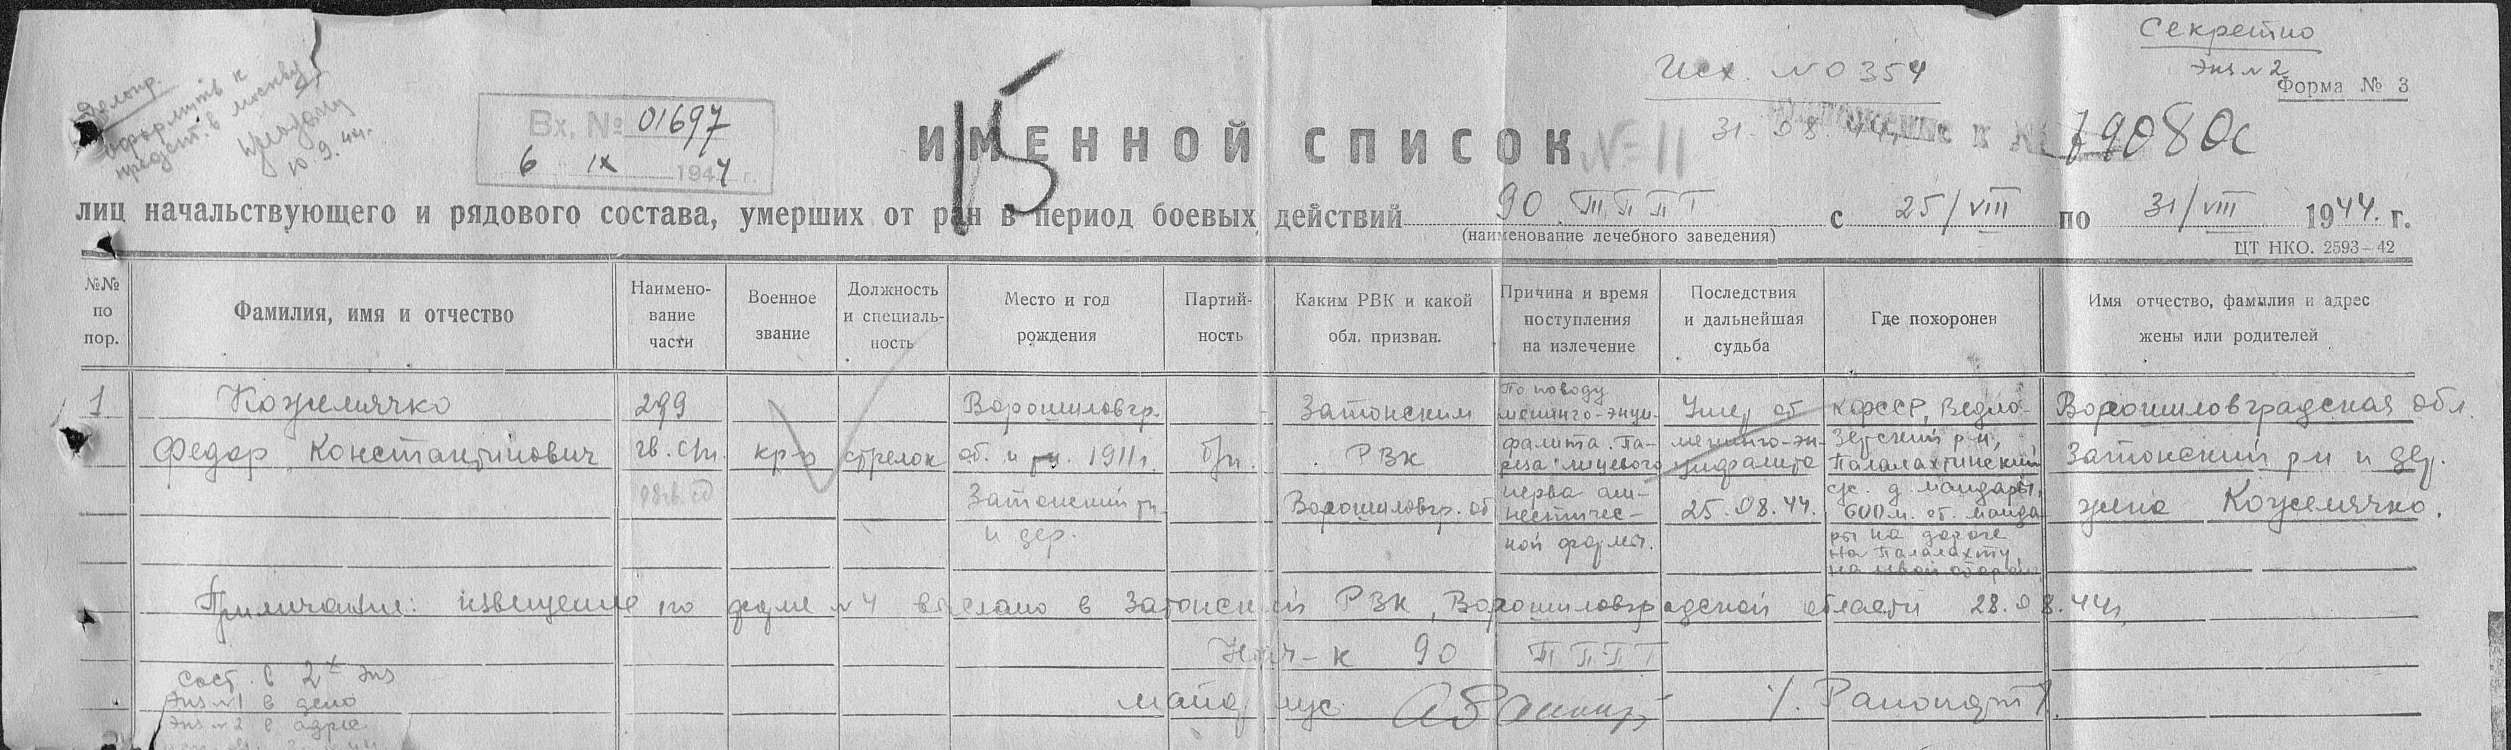 Секретно
Экз № 2
Форма № 3
Исх. № 0354
31.08.44
79080с
оформить к
в Москву
10.9.44.
Вх. № 01697
6 IX 1944 г.
15
ИМЕННОЙ СПИСОК №11
лиц начальствующего и рядового состава, умерших от ран в период боевых действий 90 ТППГ с 25/VIII по 31/VIII 1944. г.
(наименование лечебного заведения)
ЦТ НКО. 2593—42
№№ по пор.
Фамилия, имя и отчество
Наимено-
вание
части
Военное
звание
Должность
и специаль-
ность
Место и год
рождения
Партий-
ность
Каким РВК и какой
обл. призван.
Причина и время
поступления
на излечение
Последствия
и дальнейшая
судьба
Где похоронен
Имя отчество, фамилия и адрес
жены или родителей
1
Кожемячко
Федор Константинович
299
гв. сп.
кр-ц
стрелок
Ворошиловгр.
об. и 1911г.
Затонский рн.
и дер.
б/п.
Затонским
РВК
Ворошиловгр. об
По поводу
менинго-энце-
фалита. Па-
реза лицевого
нерва ам-
нестичес-
кой формы.
Умер от
менинго-эн-
цефалита
25.08.44.
КФССР, Ведло-
зерский р-н,
Палалахтинский
с/с. д. Мандары,
600 м. от. Манда-
ры на дороге
на Палалахту,
на левой стороне
Ворошиловградская обл.
Затонский рн и дер.
жена Кожемячко.
Примечание: извещение по форме №4 выслано в Затонский РВК, Ворошиловградской области 28.08.44г.
Нач-к 90 ТППГ
майор м/с /. Рапопорт/.
Сост. в 2х экз
Экз №1 в дело
Экз №2 в адрес